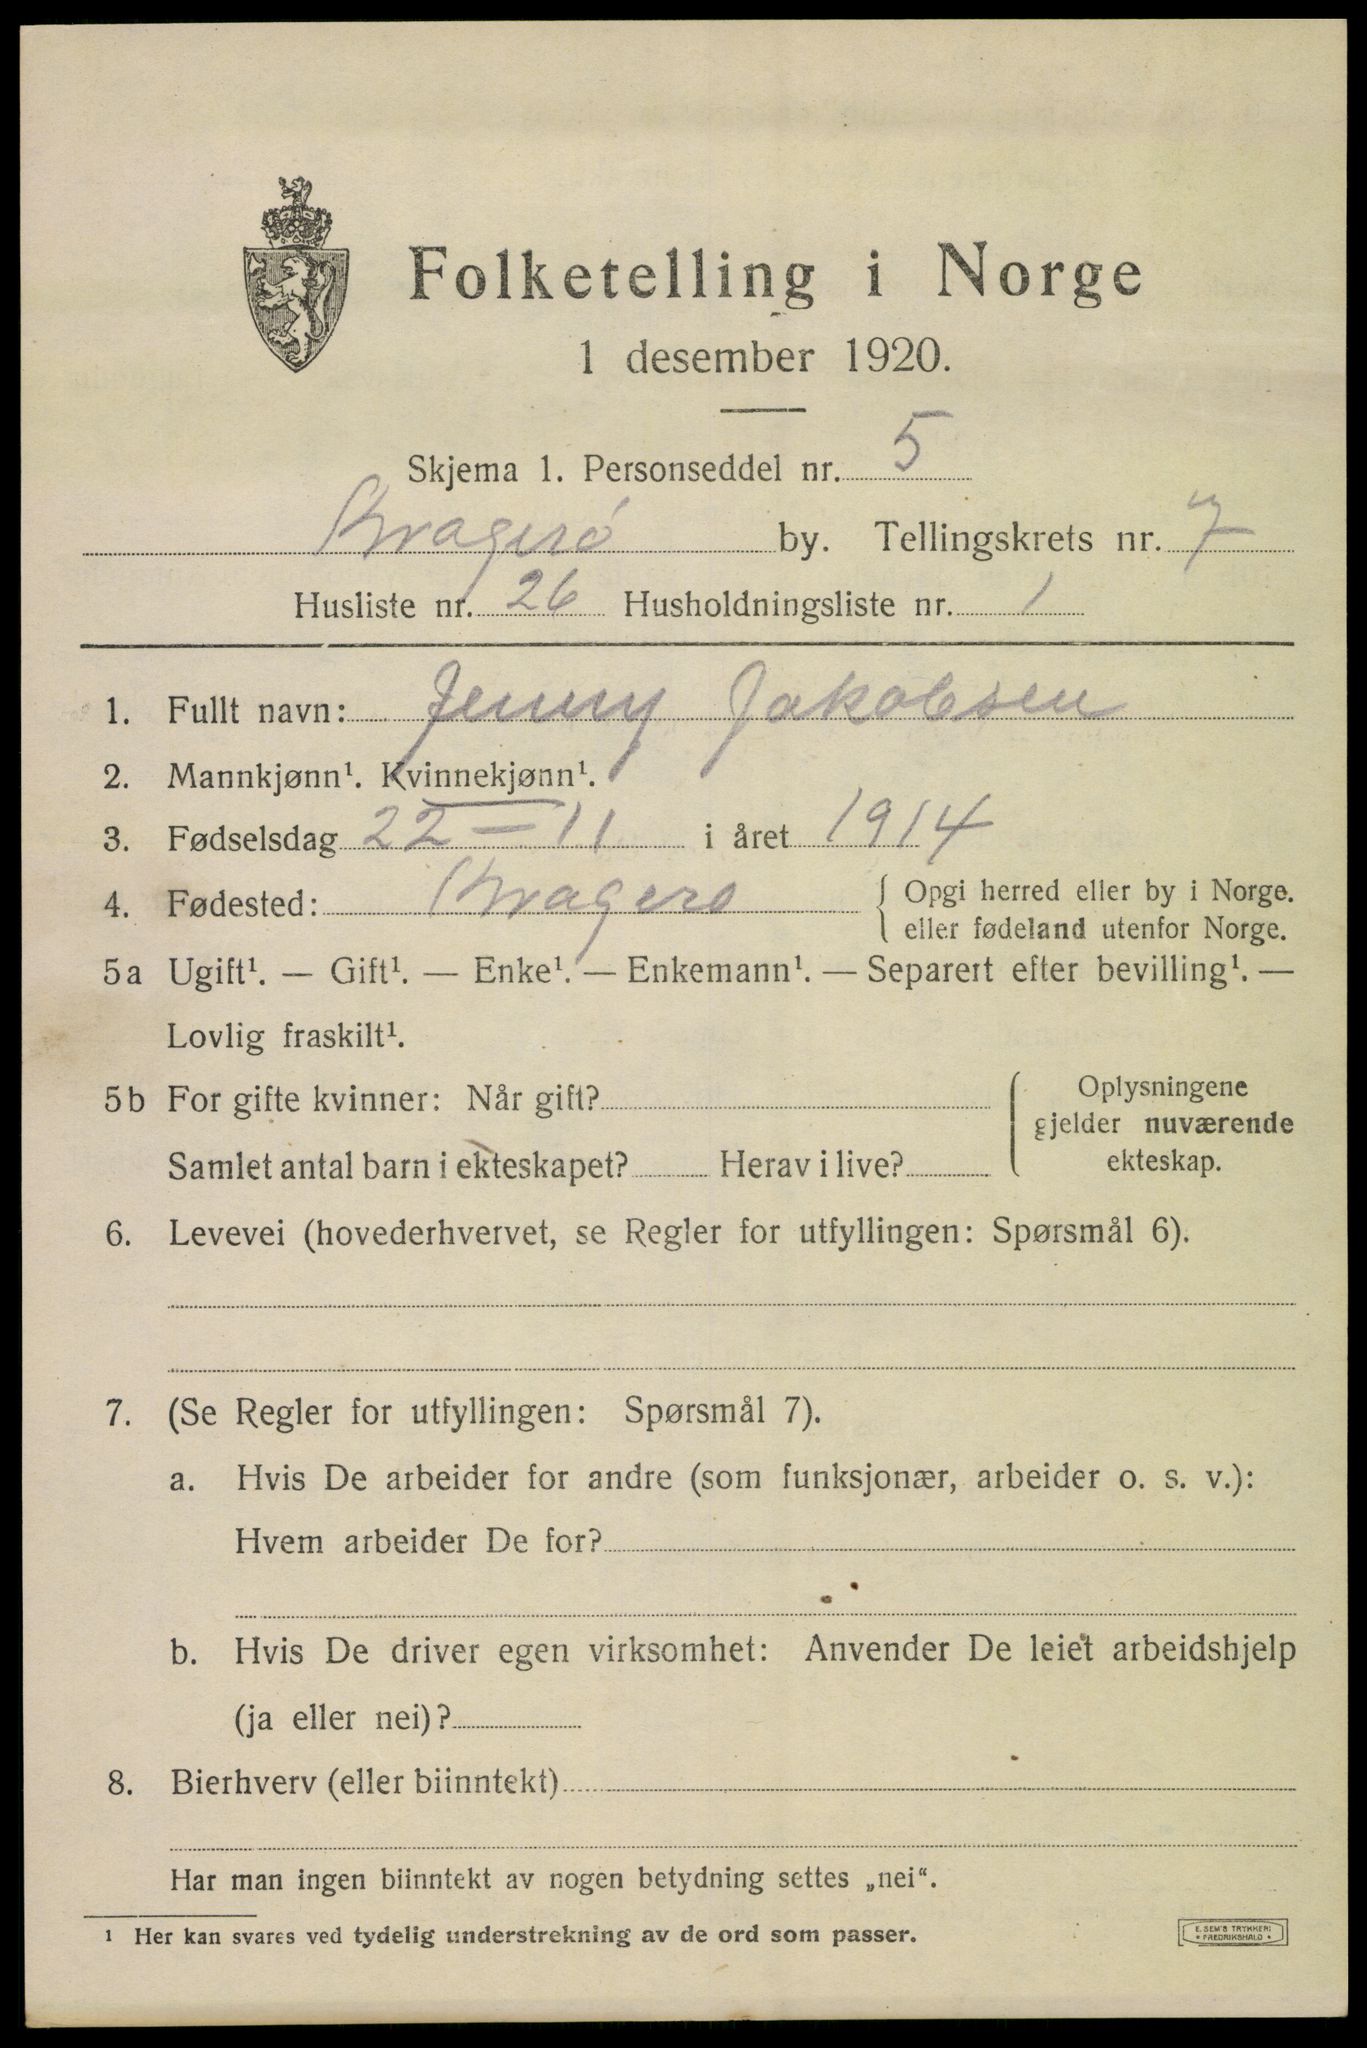 Folketelling i Norge
1 desember 1920.
Skjema 1. Personseddel nr. 5
Kragerø by. Tellingskrets nr. 7
Husliste nr. 26 Husholdningsliste nr. 1
1. Fullt navn: Jenny Jakobsen
2. Mannkjønn¹. Kvinnekjønn¹.
3. Fødselsdag 22 — 11 i året 1914
4. Fødested: Kragerø { Opgi herred eller by i Norge.
eller fødeland utenfor Norge.
5a Ugift¹. — Gift¹. — Enke¹. — Enkemann¹. — Separert efter bevilling¹. —
Lovlig fraskilt¹.
5b For gifte kvinner: Når gift? Oplysningene
gjelder nuværende
Samlet antal barn i ekteskapet? Herav i live? ekteskap.
6. Levevei (hovederhvervet, se Regler for utfyllingen: Spørsmål 6).
7. (Se Regler for utfyllingen: Spørsmål 7).
a. Hvis De arbeider for andre (som funksjonær, arbeider o. s. v.):
Hvem arbeider De for?
b. Hvis De driver egen virksomhet: Anvender De leiet arbeidshjelp
(ja eller nei)?
8. Bierhverv (eller biinntekt)
Har man ingen biinntekt av nogen betydning settes „nei“.
1 Her kan svares ved tydelig understrekning av de ord som passer.
E. SEM'S TRYKKERI
• FREDRIKSHALD •